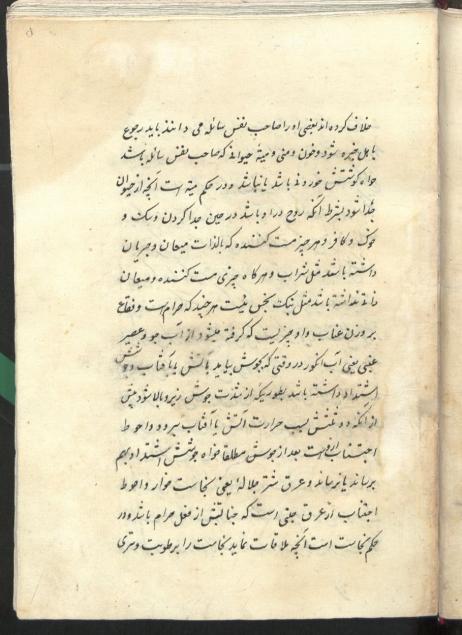 خلاف کرده‌اند بعضی او را صاحب نفس سائله می دانند باید رجوع
باهل خبره شود و خون و منی و میتهٔ حیوانی که صاحب نفس سائله باشد
خواه گوشتش خوردنی باشد یا نباشد و در حکم میته است آنچه از حیوان
جدا شود بشرط آنکه روح در او باشد در حین جدا کردن و سک و
خوک و کافر و هر چیز مست کننده که بالذات میعان و جریان
داشته باشد مثل شراب و هر کاه چیزی مست کننده و میعان
ذاتی نداشته باشد مثل بنک نجس نیست هر چند که حرام است و فقاع
بر وزن عناب و او چیزیست که گرفته میشود از آب جو و عصیر
عنبی یعنی آب انکور در وقتی که بجوش بیاید بآتش یا بآفتاب و جوشش
اشتداد داشته باشد بطوریکه از شدت جوش زیر و بالا شود پیش
از آنکه دو ثلثش بسبب حرارت آتش یا آفتاب برود و احوط
اجتناب از او است بعد از جوش مطلقا خواه جوشش اشتداد بهم
برساند یا نرساند و عرق شتر جلاله یعنی نجاست خوار و احوط
اجتناب از عرق جنبی است که جنابتش از فعل حرام باشد و در
حکم نجاست است آنچه ملاقات نماید نجاست را برطوبت و تری